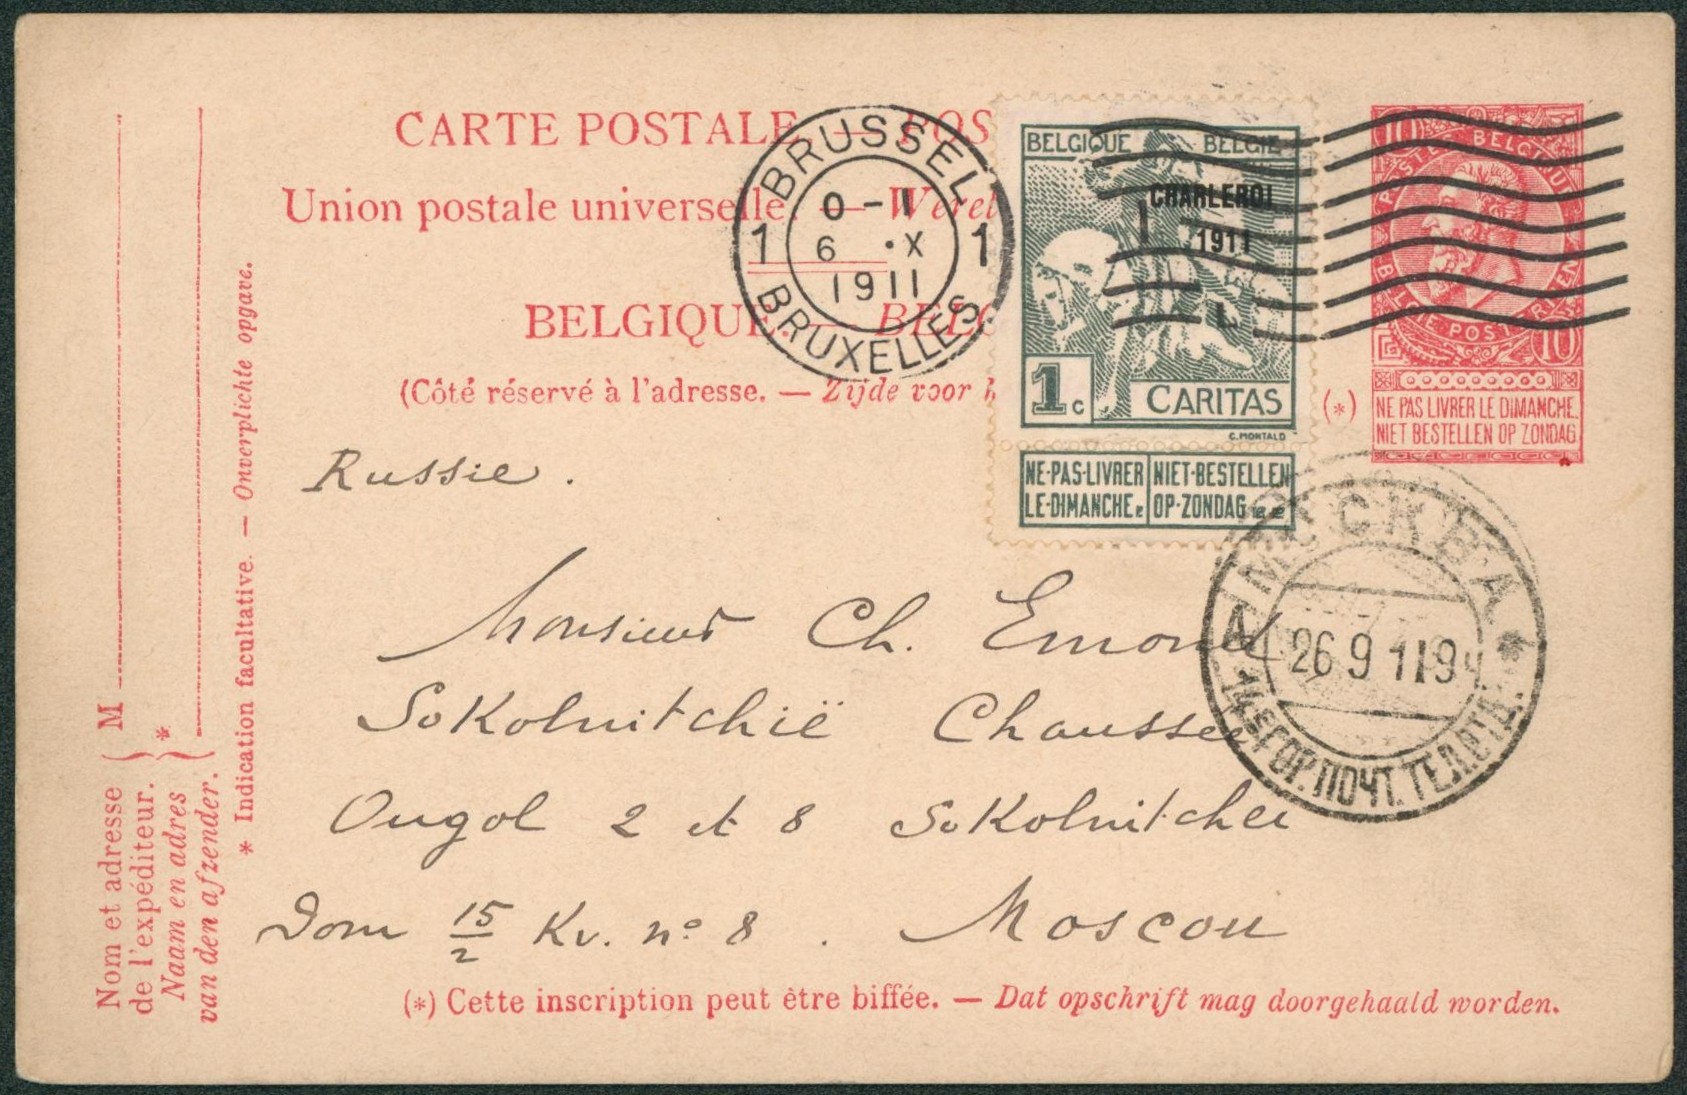 CARTE POSTALE — POS
Union postale universelle. — Werel
BELGIQUE. — BELG
(Côté réservé à l'adresse. — Zijde voor h
BRUSSEL
1 0-1 1
6 ·X
1911
BRUXELLES
BELGIQUE BELGIË
CHARLEROI
1911
1c CARITAS
C. MONTALD
NE·PAS·LIVRER NIET·BESTELLEN
LE·DIMANCHE OP·ZONDAG
10 POSTES BELGIQUE
BELGIË POSTERIJEN 10
(*) NE PAS LIVRER LE DIMANCHE.
NIET BESTELLEN OP ZONDAG
Russie.
МОСКВА
26 9 11 9
14 ГОР. ПОЧТ. ТЕЛ. ОТД.
Monsieur Ch. Emond
Sokolnitchië Chaussée
Ougol 2 et 8 Sokolnitchei
Dom 15/2 Kv. no 8. Moscou
(*) Cette inscription peut être biffée. — Dat opschrift mag doorgehaald worden.
M
*
Nom et adresse
de l'expéditeur.
Naam en adres
van den afzender.
* Indication facultative. — Onverplichte opgave.